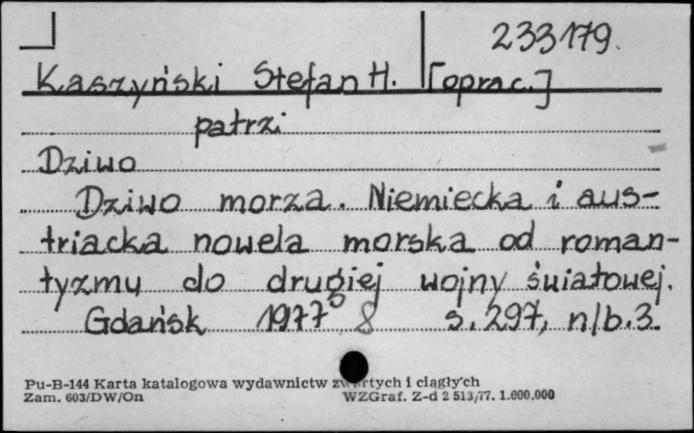 233179.
Kaszyński Stefan H. [oprac.]
patrz:
Dziwo
Dziwo morza. Niemiecka i aus-
triacka nowela morska od roman-
tyzmu do drugiej wojny światowej.
Gdańsk 1977 8° s. 297, n/b. 3.
Pu-B-144 Karta katalogowa wydawnictw zwartych i ciągły'ch
Zam. 603/DW/On WZGraf. Z-d 2 513/77. 1.000.000